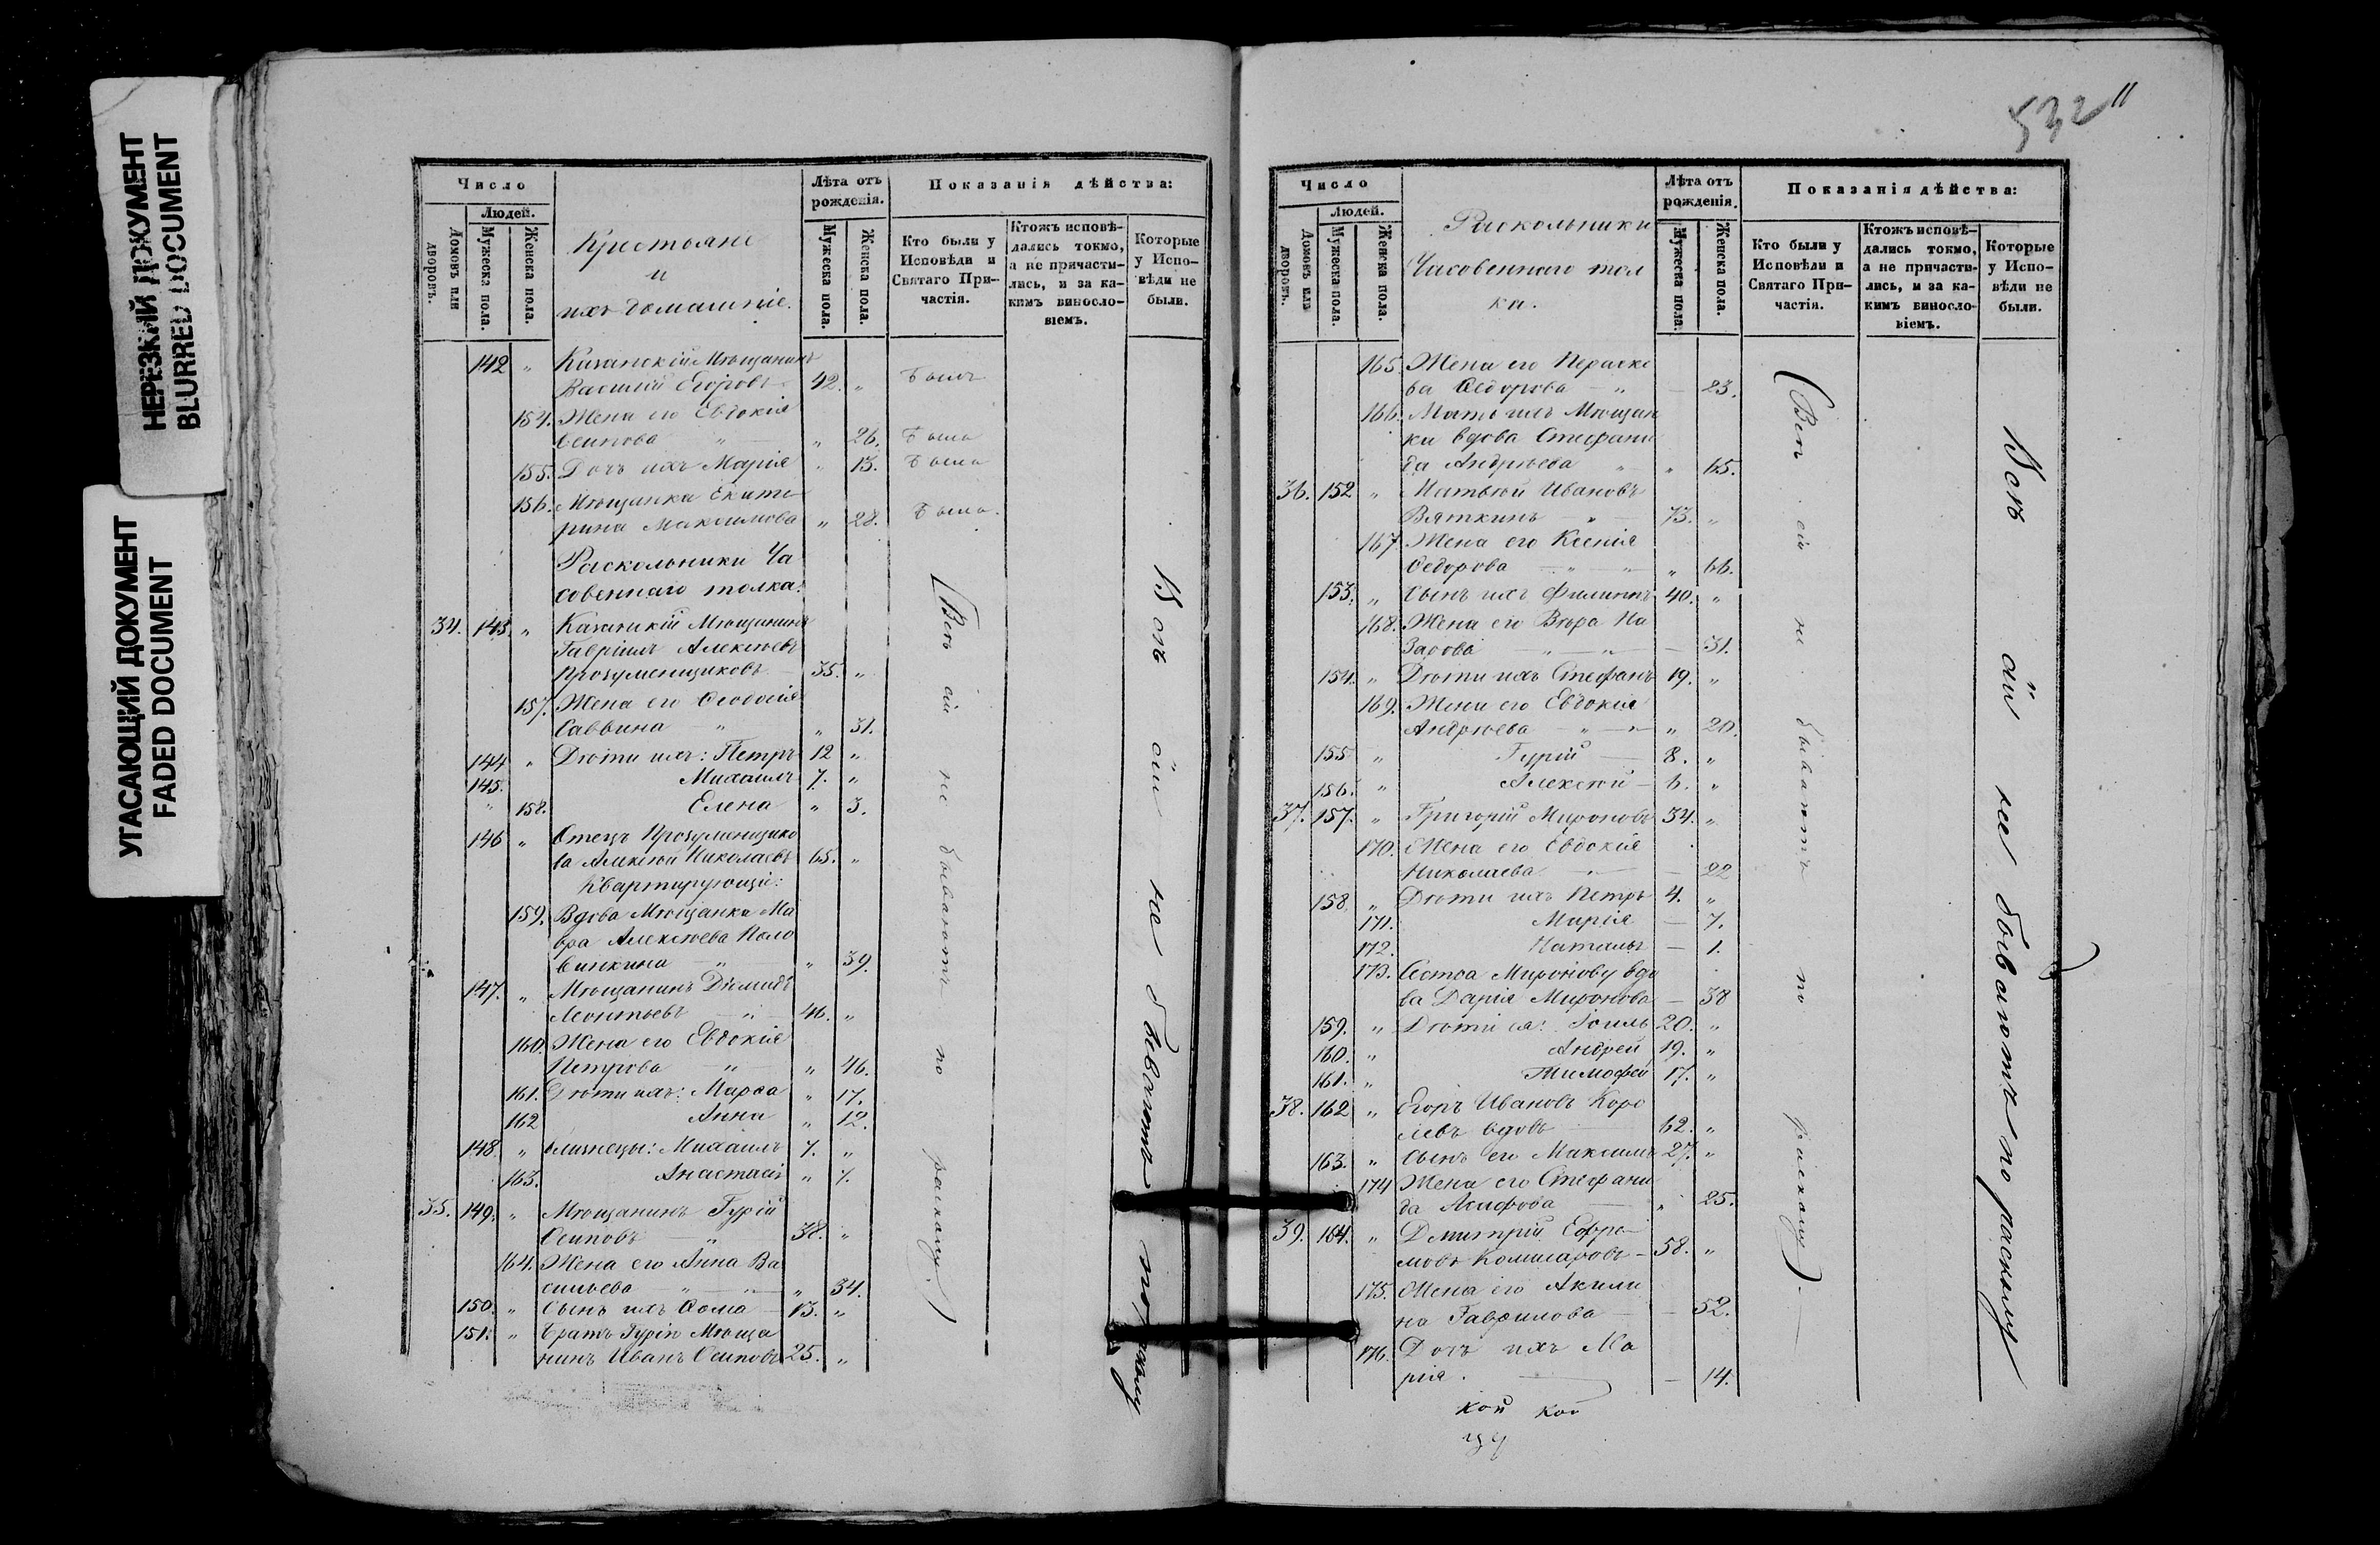 НЕРЕЗКИЙ ДОКУМЕНТ
BLURRED DOCUMENT
УГАСАЮЩИЙ ДОКУМЕНТ
FADED DOCUMENT
Число
Людей.
Домовъ или дворовъ.
Мужеска пола.
Женска пола.
Крестьяне
и
ихъ домашніе.
Лѣта отъ рожденія.
Мужеска пола.
Женска пола.
Показанія дѣйства:
Кто были у Исповѣди и Святаго Причастія.
Ктожъ исповѣдались токмо, а не причастились, и за какимъ винословіемъ.
Которые у Исповѣди не были.
142 " Казанскій Мѣщанинъ
Василій Егоровъ 42. " Былъ
154. Жена его Евдокія
Осипова " " 26. Была
155. Дочь ихъ Марія " 13. Была
156. Мѣщанка Екате
рина Максимова " 28. Была.
Раскольники Ча
совеннаго толка:
34. 143. " Казанскій Мѣщанинъ
Гавріилъ Алексѣевъ
Прозуменщиковъ 35. "
157. Жена его Ѳеодосія
Саввина " " 31.
144 " Дѣти ихъ: Петръ 12 "
145. Михаилъ 7. "
" 158. Елена " 3.
146 " Отецъ Прозуменщико
ва Алексѣй Николаевъ 65. "
Квартирующіе:
159. Вдова Мѣщанка Ма
вра Алексѣева Поло
винкина " " 39.
147. " Мѣщанинъ Діомидъ
Леонтьевъ " 46. "
160. Жена его Евдокія
Петрова " " 46.
161. Дѣти ихъ: Марѳа " 17.
162 Анна " 12.
148. " близнецы: Михаилъ 7. "
163. Анастасія " 7.
35. 149. " Мѣщанинъ Гурій
Осиповъ " 38. "
164. Жена его Анна Ва
сильева " " " 34.
150. " Сынъ ихъ Ѳома 13. "
151. " Братъ Гурію Мѣща
нинъ Иванъ Осиповъ 25. "
(Всѣ сіи не бываютъ по расколу.)
Всѣ сіи не бываютъ по расколу
532
Число
Людей.
Домовъ или дворовъ.
Мужеска пола.
Женска пола.
Раскольники
Часовеннаго тол
ка.
Лѣта отъ рожденія.
Мужеска пола.
Женска пола.
Показанія дѣйства:
Кто были у Исповѣди и Святаго Причастія.
Ктожъ исповѣдались токмо, а не причастились, и за какимъ винословіемъ.
Которые у Исповѣди не были.
165. Жена его Параске
ва Ѳедорова " — 23.
166. Мать ихъ Мѣщан
ка вдова Стефани
да Андрѣева " " 65.
36. 152 " Матвѣй Ивановъ
Вяткинъ " 73. "
167 Жена его Ксенія
Ѳедорова " " " 66.
153. " Сынъ ихъ Филиппъ 40. "
168. Жена его Вѣра На
зарова " " — 31.
154. " Дѣти ихъ Стефанъ 19. "
169. Жена его Евдокія
Андрѣева " " " 20.
155 " Гурій 8. "
156. " Алексѣй 6. "
37. 157. " Григорій Мироновъ 34. "
170. Жена его Евдокія
Николаева — 22
158 " Дѣти ихъ Петръ 4. "
171. Марія — 7.
172. Наталья — 1.
173. Сестра Миронову вдо
ва Дарія Миронова — 38
159. " Дѣти ея: Іоиль 20. "
160. " Андрей 19. "
161. " Тимофей 17. "
38. 162 " Егоръ Ивановъ Коро
левъ вдовъ 62. "
163. " Сынъ его Максимъ 27. "
174 Жена его Стефани
да " 25.
39. 164. " Дмитрій Ефре
мовъ Комисаровъ 58. "
175. Жена его Акили
на Гаврилова — 52.
176. Дочь ихъ Ма
рія. — 14.
(Всѣ сіи не бываютъ по расколу).
Всѣ сіи не бываютъ по расколу